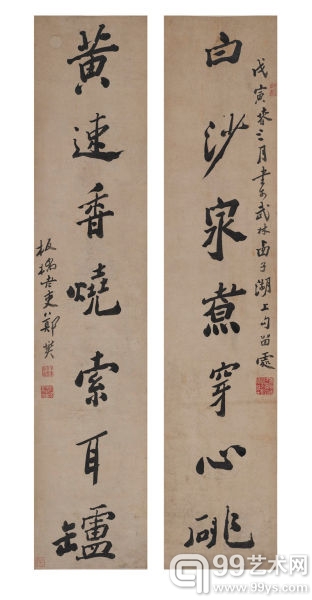 白沙泉煮穿心
戊寅春三月書於武林西子湖上勾留處
黃速香燒索耳罏
板橋老吏鄭燮
99艺术网
www.99ys.com